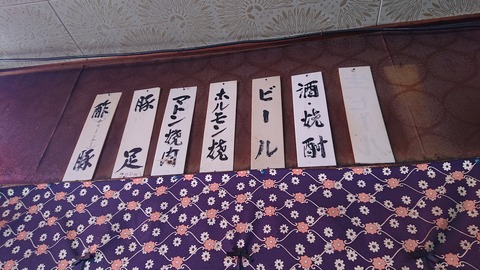 酒・焼酎
ビール
ホルモン焼
マトン焼肉
豚足
酢豚